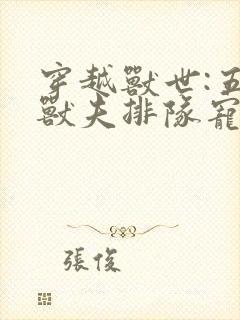 穿越獸世:五
獸夫排隊寵
張俊